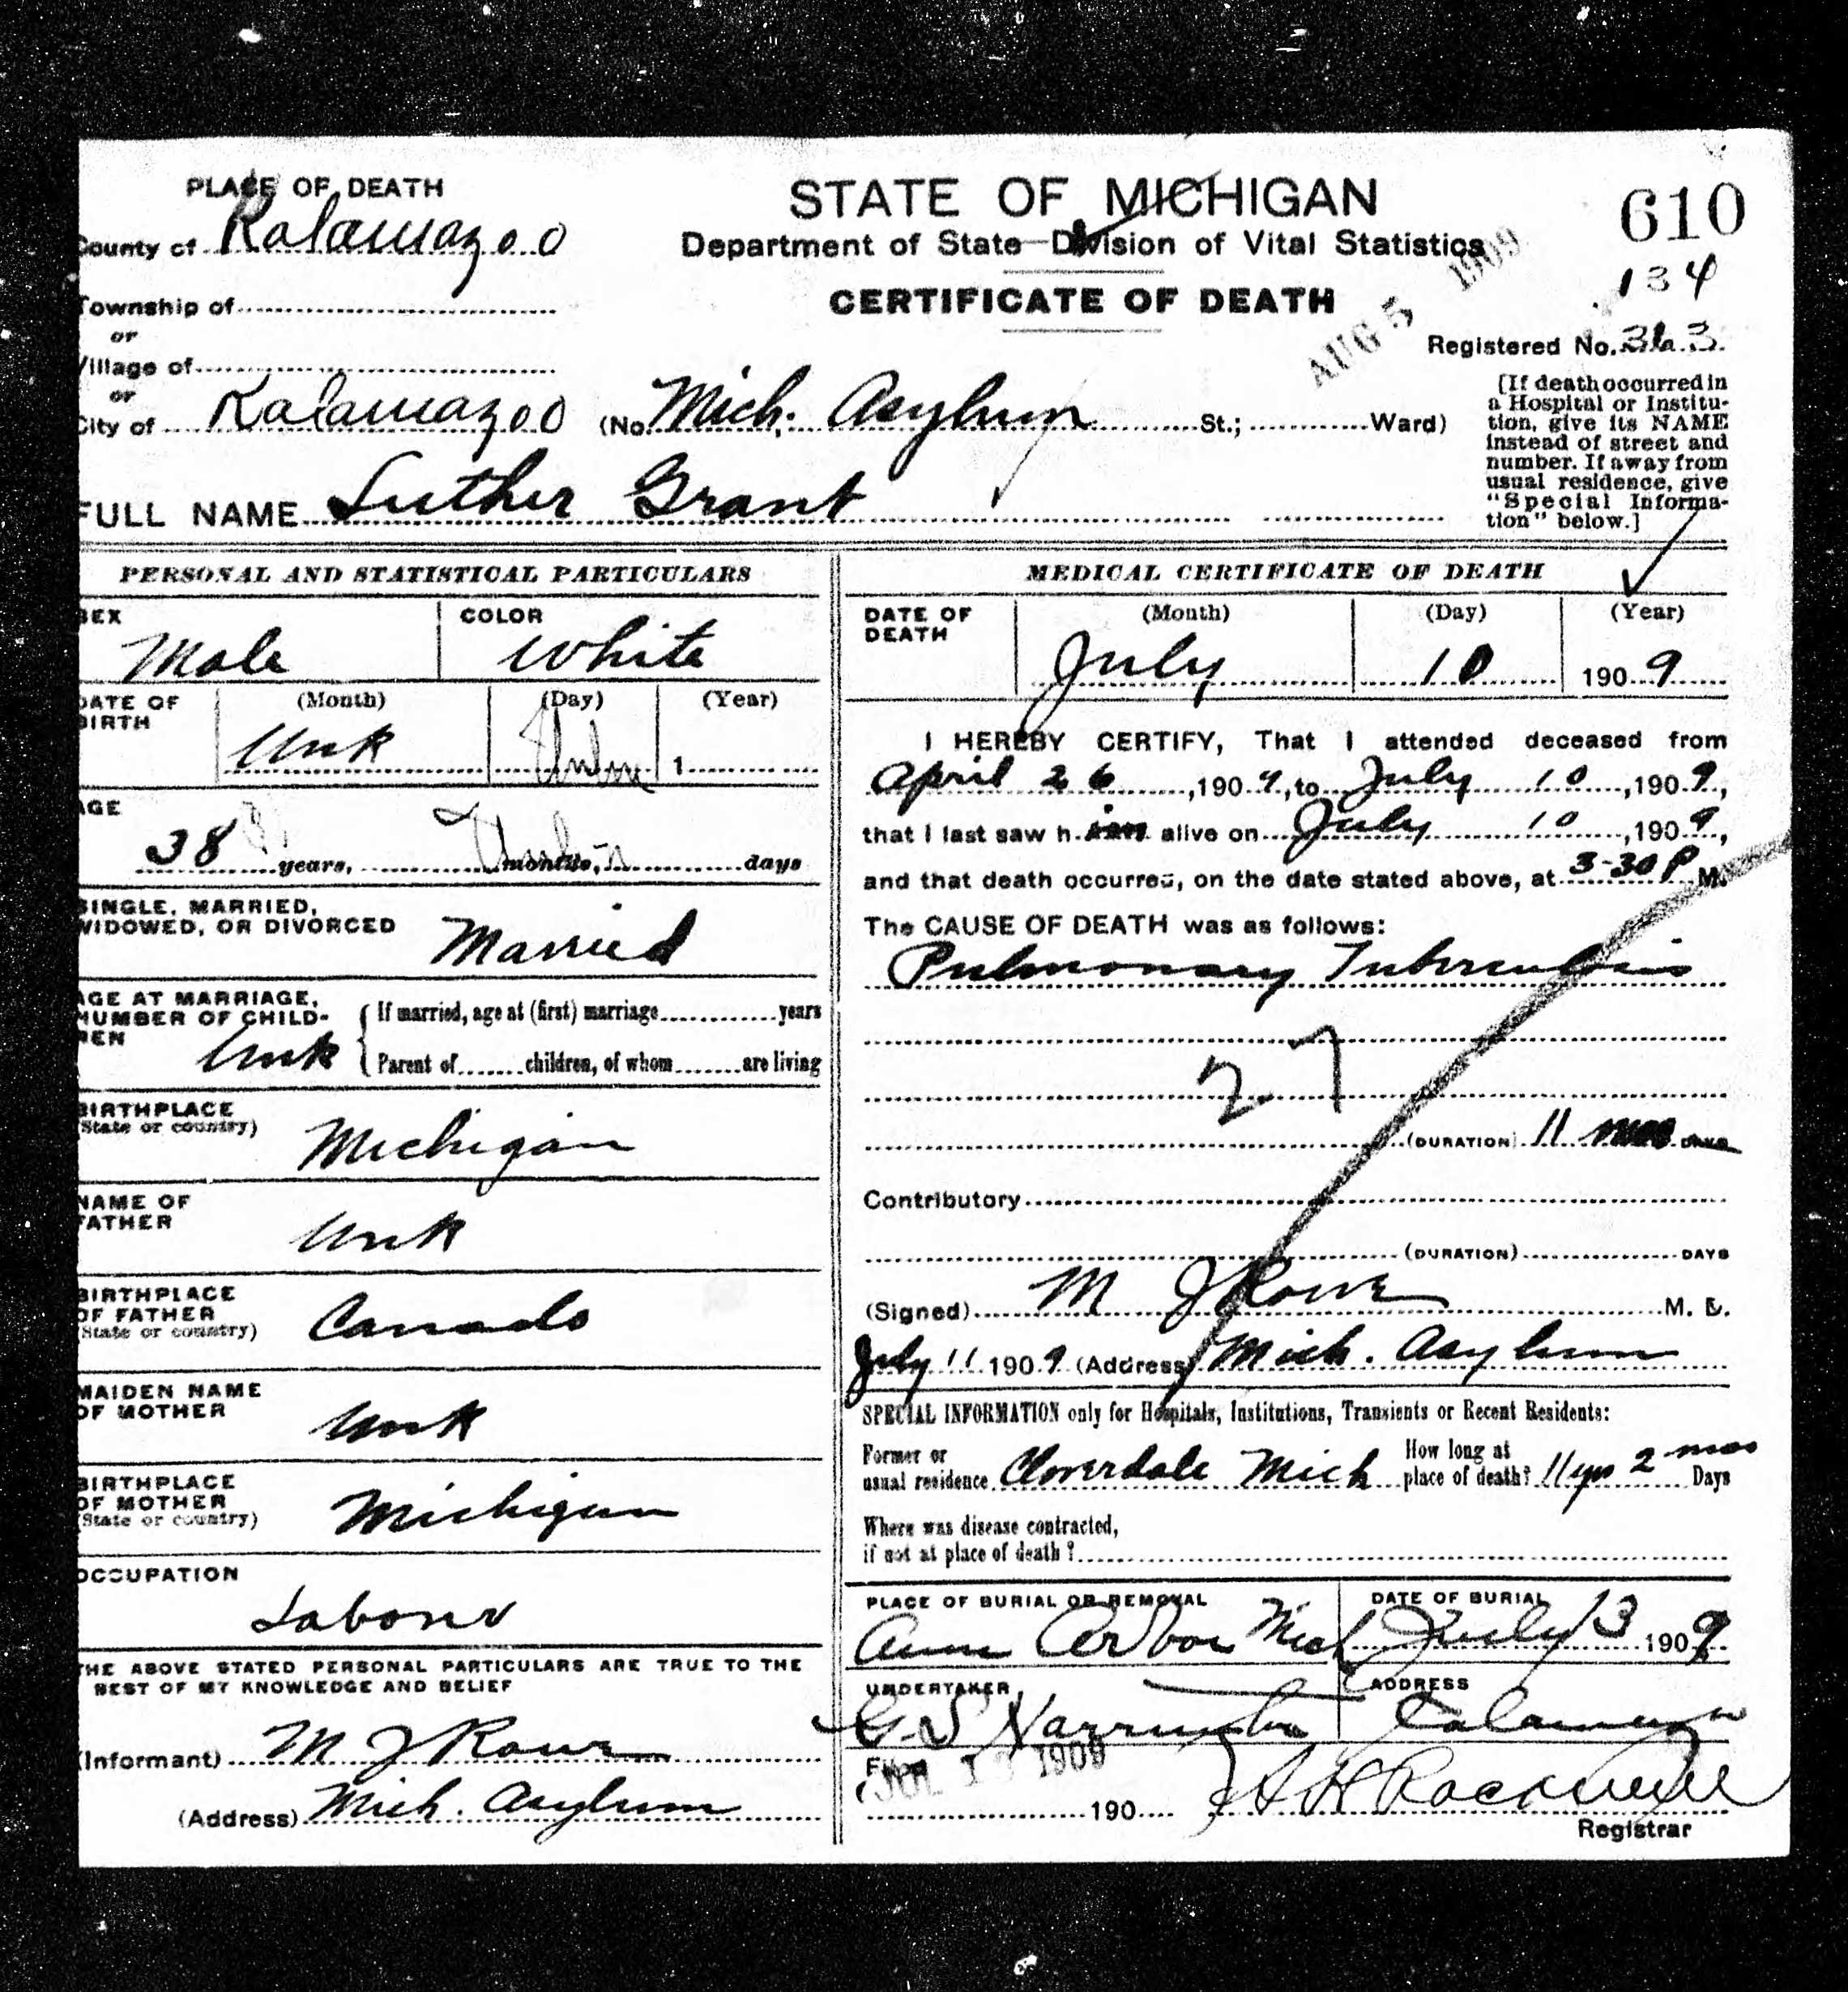 PLACE OF DEATH
County of Kalamazoo
Township of
or
Village of
or
City of Kalamazoo (No. Mich. Asylum St.; Ward)
FULL NAME Luther Grant
STATE OF MICHIGAN
Department of State—Division of Vital Statistics
CERTIFICATE OF DEATH
AUG 5 1909
610
134
Registered No.
[If death occurred in
a Hospital or Institu-
tion, give its NAME
instead of street and
number. If away from
usual residence, give
"Special Informa-
tion" below.]
PERSONAL AND STATISTICAL PARTICULARS
SEX
Male
COLOR
White
DATE OF
BIRTH
(Month)
Unk
(Day)
(Year)
1
AGE
38 years, months, days
SINGLE, MARRIED,
WIDOWED, OR DIVORCED
Married
AGE AT MARRIAGE,
NUMBER OF CHILD-
REN
Unk
If married, age at (first) marriage years
Parent of children, of whom are living
BIRTHPLACE
(State or country)
Michigan
NAME OF
FATHER
Unk
BIRTHPLACE
OF FATHER
(State or country)
Canada
MAIDEN NAME
OF MOTHER
Unk
BIRTHPLACE
OF MOTHER
(State or country)
Michigan
OCCUPATION
Labour
THE ABOVE STATED PERSONAL PARTICULARS ARE TRUE TO THE
BEST OF MY KNOWLEDGE AND BELIEF
(Informant) M J Rowe
(Address) Mich. Asylum
MEDICAL CERTIFICATE OF DEATH
DATE OF
DEATH
(Month)
July
(Day)
10
(Year)
1909
I HEREBY CERTIFY, That I attended deceased from
April 26, 1909, to July 10, 1909,
that I last saw him alive on July 10, 1909,
and that death occurred, on the date stated above, at 3-30 P M.
The CAUSE OF DEATH was as follows:
Pulmonary Tuberculosis
27
(DURATION) 11 mos DAYS
Contributory
(DURATION) DAYS
(Signed) M J Rowe M. D.
July 11 1909 (Address) Mich. Asylum
SPECIAL INFORMATION only for Hospitals, Institutions, Transients or Recent Residents:
Former or
usual residence Cloverdale Mich
How long at
place of death? 11 yrs 2 mos Days
Where was disease contracted,
if not at place of death?
PLACE OF BURIAL OR REMOVAL
Ann Arbor Mich
DATE OF BURIAL
July 13 1909
UNDERTAKER
G. S
ADDRESS
Kalamazoo
Filed
JUL 1 1909
190
A H Rockwell
Registrar